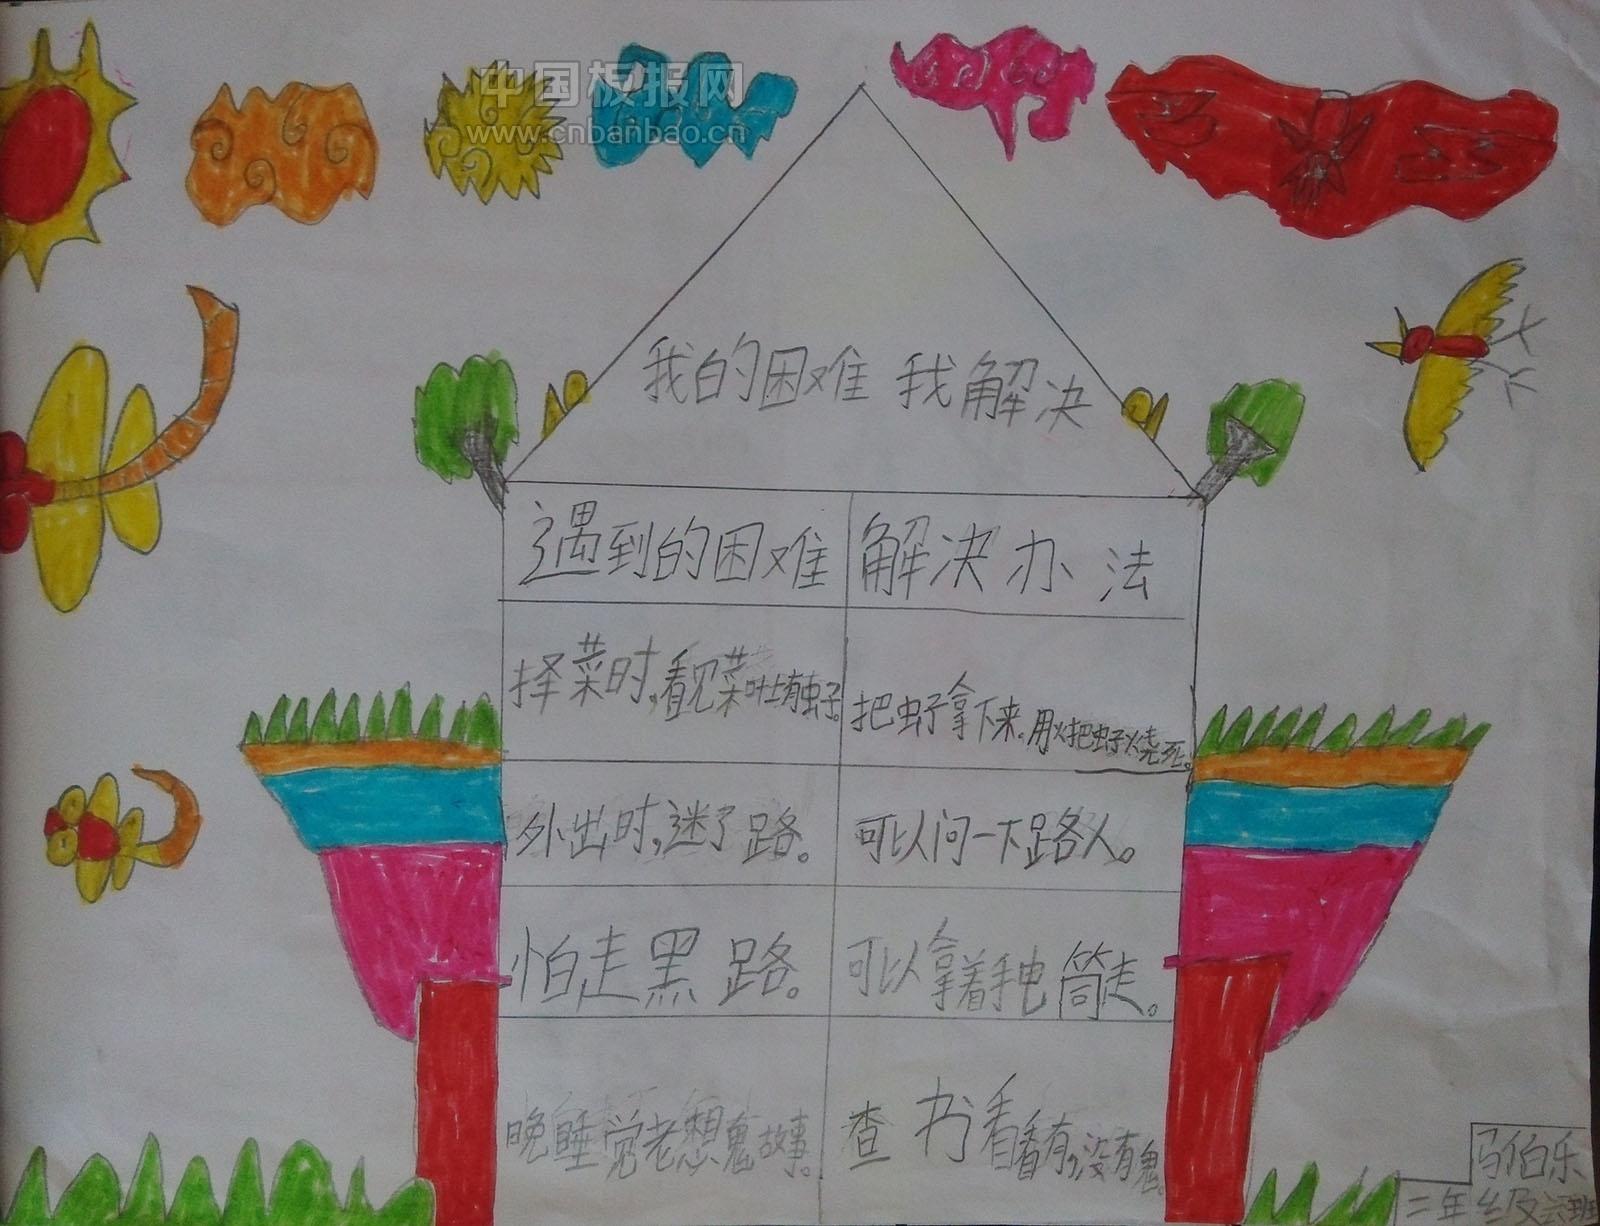 中国板报网
www.cnbanbao.cn
我的困难 我解决
遇到的困难 解决办法
择菜时,看见菜叶上有虫子。 把虫子拿下来。用火把虫子烧死。
外出时,迷了路。 可以问一下路人。
怕走黑路。 可以拿着手电筒走。
晚睡觉老想鬼故事。 查书看看有没有鬼。
马伯乐
二年级六班